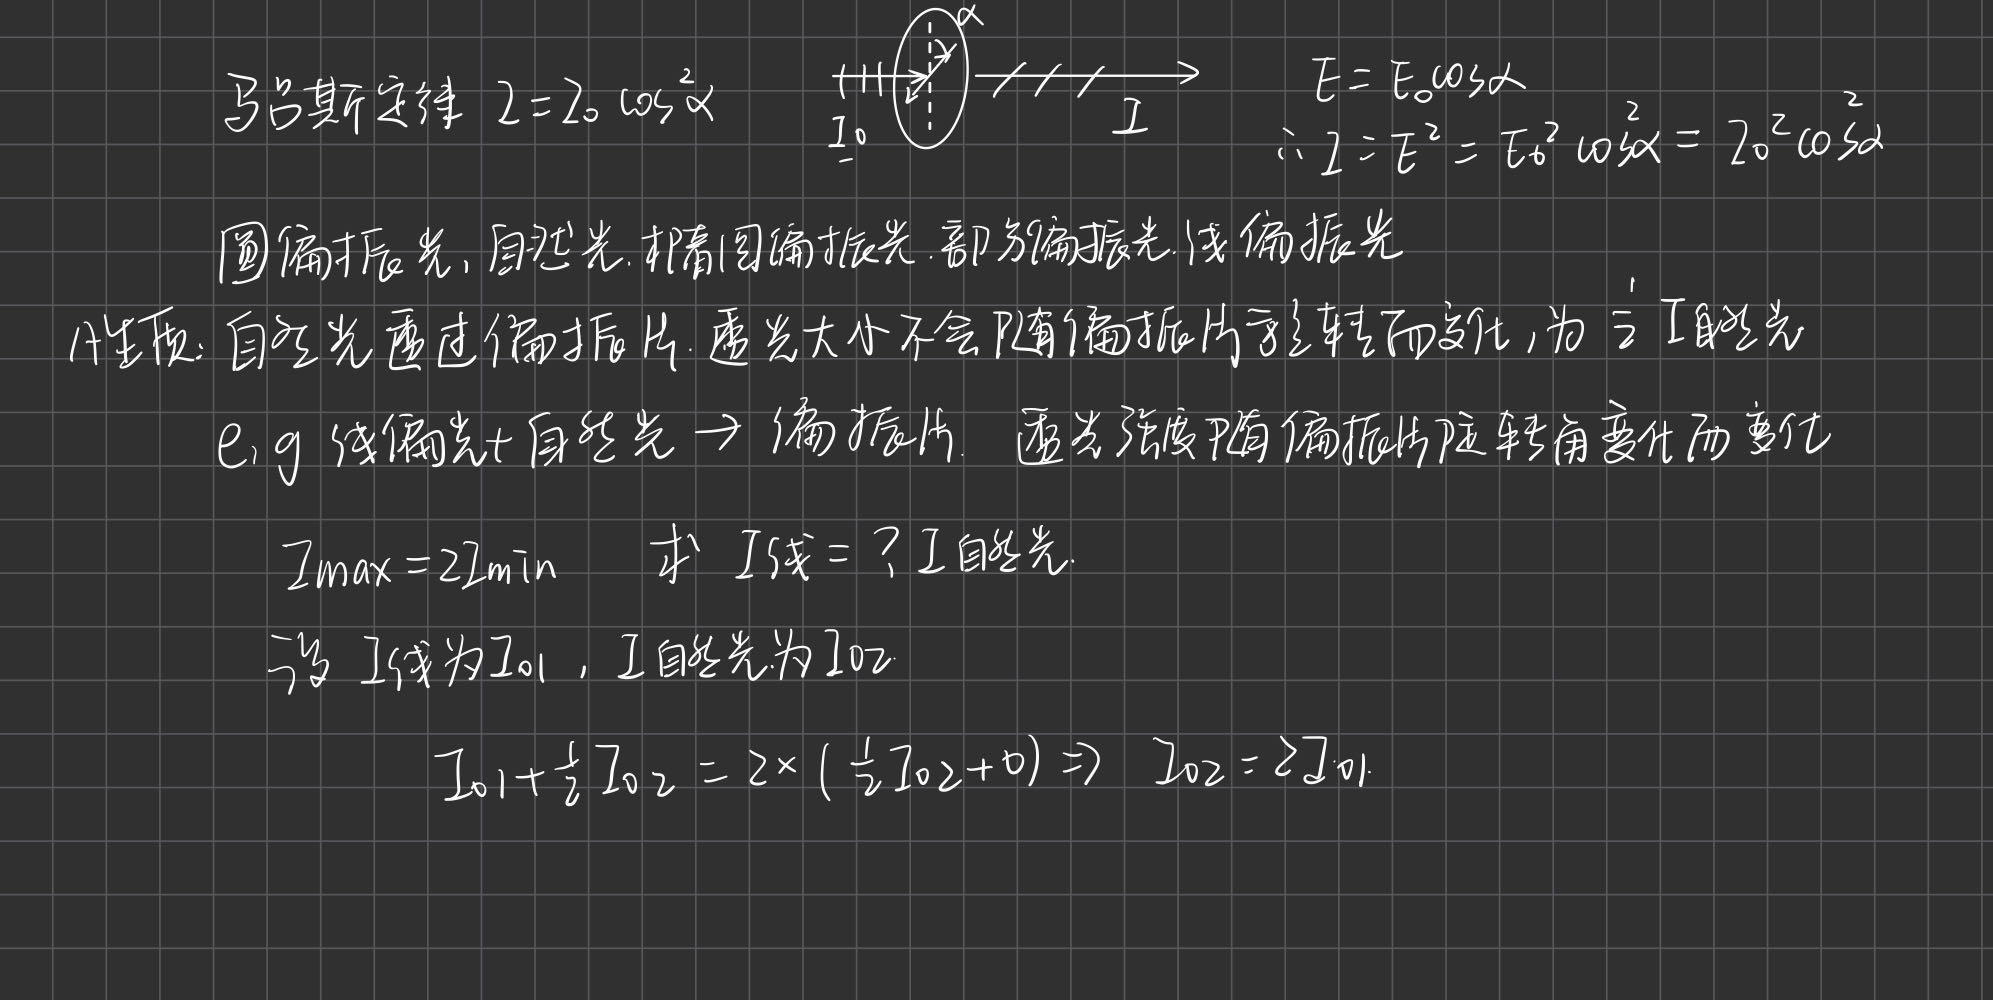 马吕斯定律 I=I₀cos²α
α
I₀
I
E=E₀cosα
∴I=E²=E₀²cos²α=I₀²cos²α
圆偏振光,自然光.椭圆偏振光.部分偏振光.线偏振光
性质:自然光透过偏振片.透光大小不会随偏振片旋转而变化,为½I自然光
e.g 线偏光+自然光→偏振片. 透光强度随偏振片旋转角变化而变化
Imax=2Imin 求 I线=?I自然光.
设 I线为I₀₁,I自然光为I₀₂.
I₀₁+½I₀₂=2×(½I₀₂+0)⇒ I₀₂=2I₀₁.